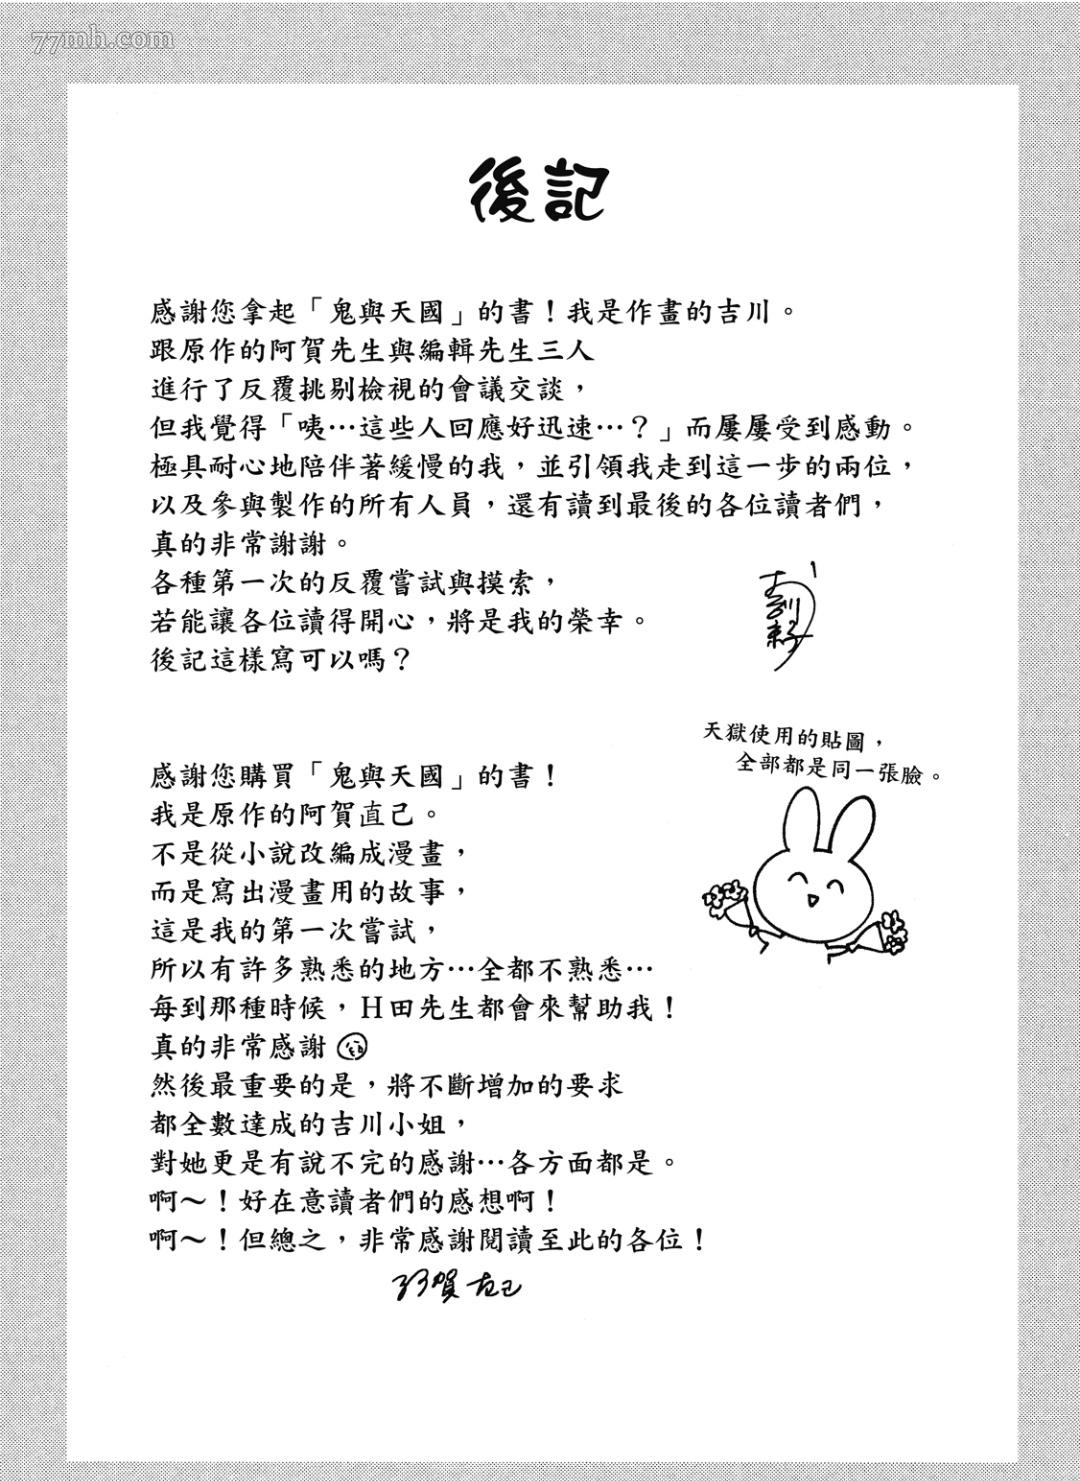 77mh.com
後記
感謝您拿起「鬼與天國」的書！我是作畫的吉川。
跟原作的阿賀先生與編輯先生三人
進行了反覆挑剔檢視的會議交談，
但我覺得「咦…這些人回應好迅速…？」而屢屢受到感動。
極具耐心地陪伴著緩慢的我，並引領我走到這一步的兩位，
以及參與製作的所有人員，還有讀到最後的各位讀者們，
真的非常謝謝。
各種第一次的反覆嘗試與摸索，
若能讓各位讀得開心，將是我的榮幸。
後記這樣寫可以嗎？
天獄使用的貼圖，
全部都是同一張臉。
感謝您購買「鬼與天國」的書！
我是原作的阿賀直己。
不是從小說改編成漫畫，
而是寫出漫畫用的故事，
這是我的第一次嘗試，
所以有許多熟悉的地方…全都不熟悉…
每到那種時候，H田先生都會來幫助我！
真的非常感謝
然後最重要的是，將不斷增加的要求
都全數達成的吉川小姐，
對她更是有說不完的感謝…各方面都是。
啊～！好在意讀者們的感想啊！
啊～！但總之，非常感謝閱讀至此的各位！
阿賀直己